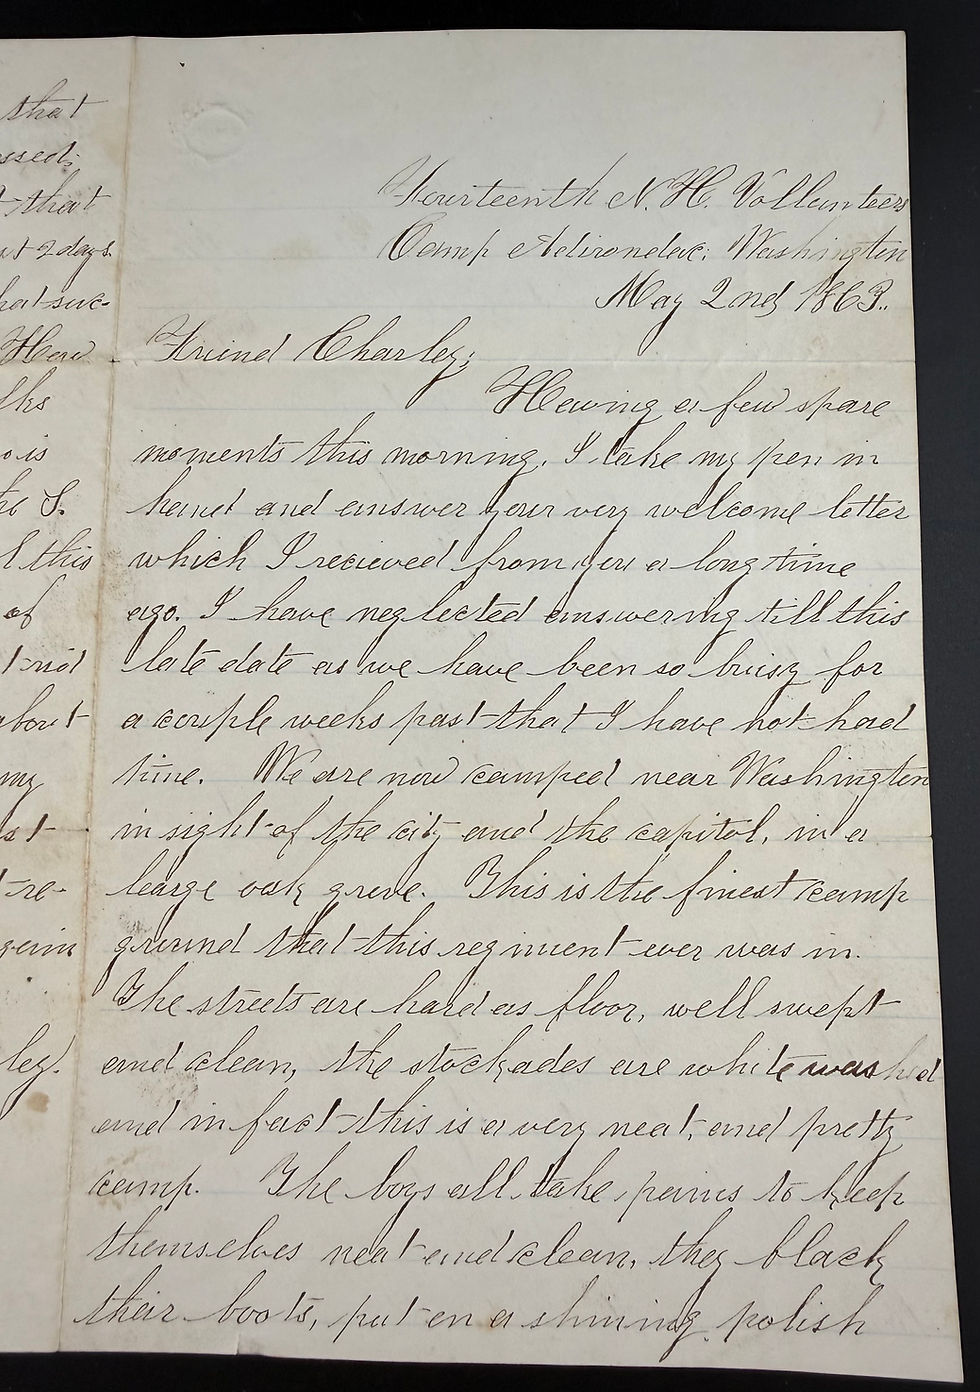 that
ssed;
t that
nt 2 days.
hat suc-
How
lks
o is
he S.
l this
of
t not
about
my
st
t re-
gain
ley.
Fourteenth N. H. Vollunteers
Camp Adirondac; Washington
May 2nd, 1863..
Friend Charley;
Having a few spare
moments this morning, I take my pen in
hand and answer your very welcome letter
which I recieved from you a long time
ago. I have neglected answering till this
late date as we have been so buisy for
a couple weeks past that I have not had
time. We are now camped near Washington
in sight of the city and the capitol, in a
large oak grove. This is the finest camp
ground that this regiment ever was in.
The streets are hard as floor, well swept
and clean, the stockades are white washed
and in fact this is a very neat, and pretty
camp. The boys all take pains to keep
themselves neat and clean, they black
their boots, put on a shining polish